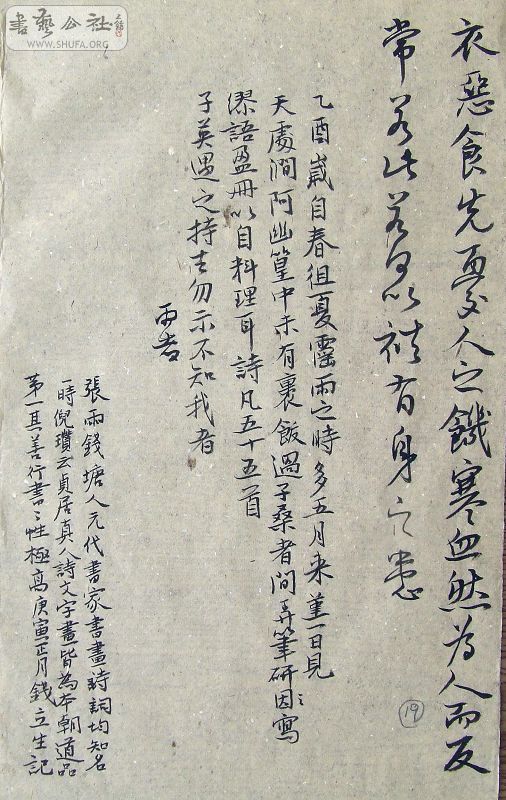 書藝公社
WWW.SHUFA.ORG
衣惡食先憂人之饑寒迺然為人而反
常若此若何以袪有身之患
乙酉嵗自春徂夏霪雨之時多五月来堇一日見
天處澗阿幽篁中未有裹飯過子桑者間弄筆研因寫
漻語盈冊以自料理耳詩凡五十五首
子英遇之持去勿示不知我者
雨者
張雨錢塘人元代書家書畫詩詞均知名
一時倪瓚云貞居真人詩文字畫皆為本朝道品
第一其善行書書性極高庚寅正月錢立生記
19